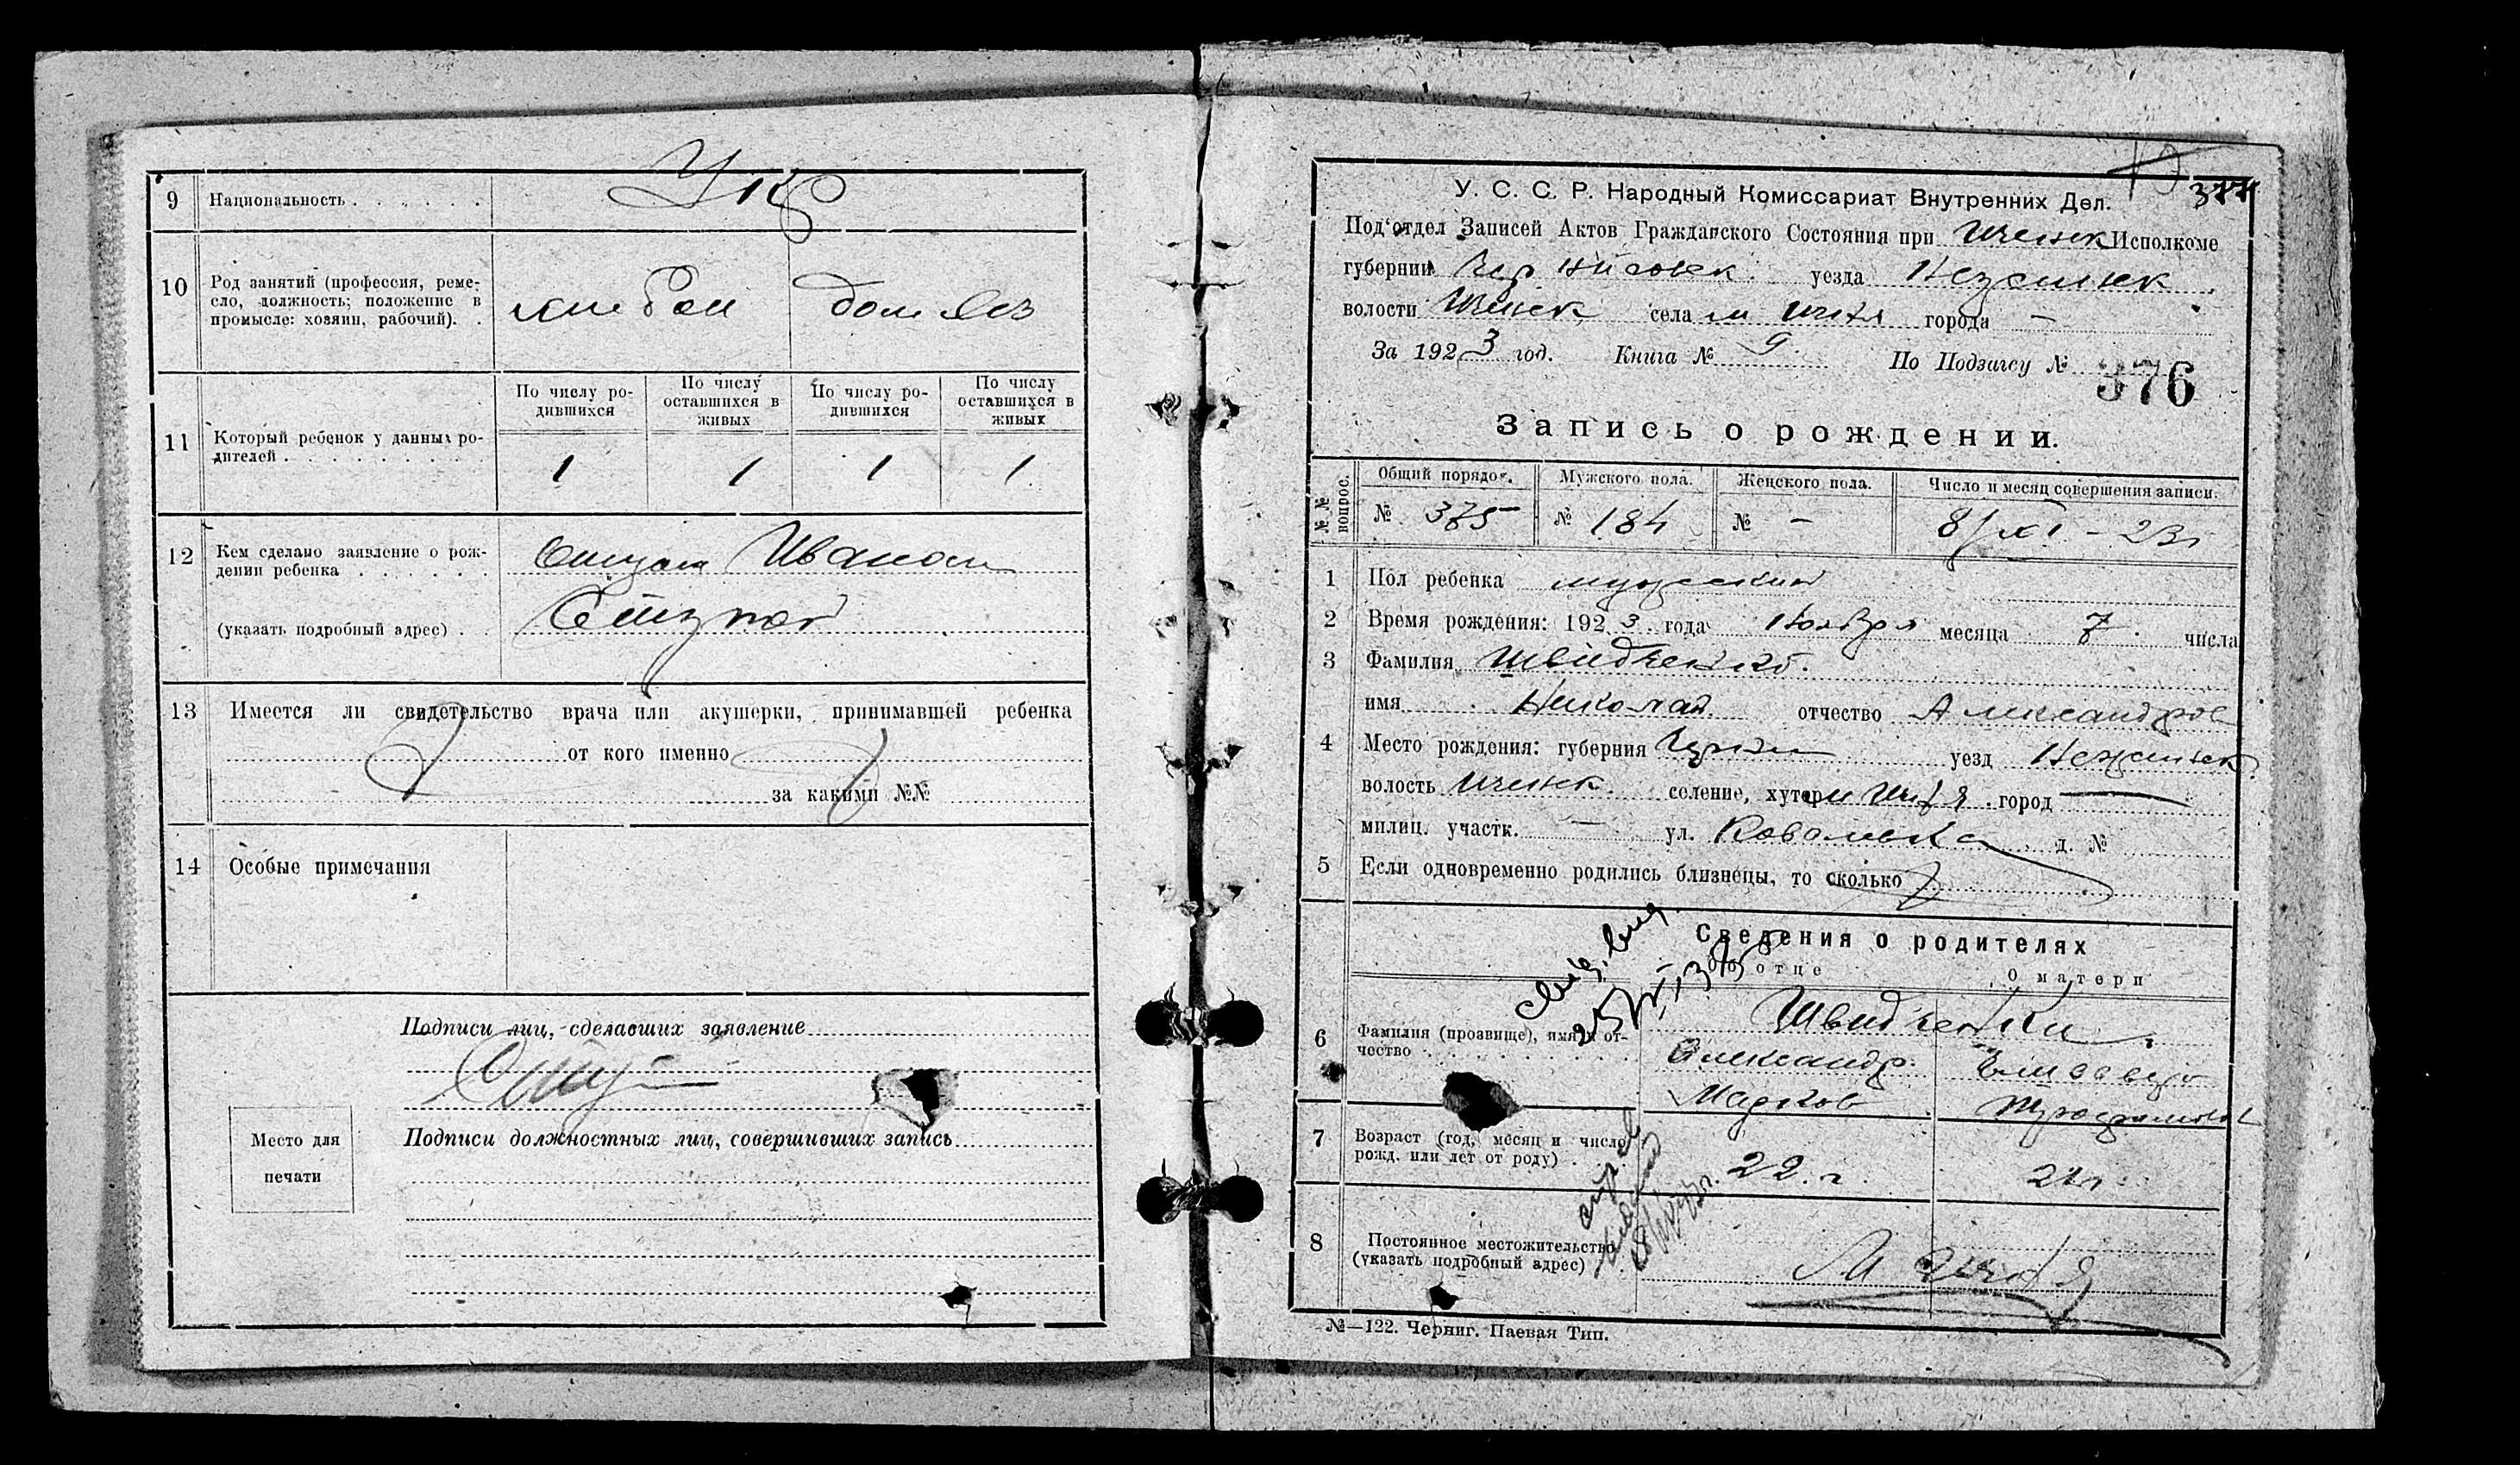 9 Национальность . . . . . .
Укр
10 Род занятий (профессия, реме-
сло, должность; положение в
промысле: хозяин, рабочий). .
хлебоп дом хоз
11 Который ребенок у данных ро-
дителей . . . . . . . . .
По числу ро-
дившихся
По числу
оставшихся в
живых
По числу ро-
дившихся
По числу
оставшихся в
живых
1 1 1 1
12 Кем сделано заявление о рож-
дении ребенка . . . . . .
Иваном
(указать подробный адрес) . .
13 Имеется ли свидетельство врача или акушерки, принимавшей ребенка
от кого именно
за какими №№
14 Особые примечания
Подписи лиц, сделавших заявление
Место для
печати
Подписи должностных лиц, совершивших запись
377
У. С. С. Р. Народный Комиссариат Внутренних Дел.
Под'отдел Записей Актов Гражданского Состояния при Иченск Исполкоме
губернии Чернiговск. уезда Нежинск
волости Иченск села м Ичня города —
За 1923 год. Книга № 9. По Подзагсу № 376
Запись о рождении.
№№ вопрос.
Общий порядок. Мужского пола. Женского пола. Число и месяц совершения записи.
№ 375 № 184 № — 8/XI - 23г
1 Пол ребенка мужский
2 Время рождения: 1923 года Ноября месяца 7. числа
3 Фамилия Швидченко.
имя Николай отчество Александров
4 Место рождения: губерния Черниг уезд Нежинск.
волость Иченск. селение, хутор м Ичня город —
милиц. участк. — ул. Ковалевка д. №
5 Если одновременно родились близнецы, то сколько
Сведения о родителях
Об отце О матери
6 Фамилия (прозвище), имя и от-
чество . . . . . . . . . .
Швидченки
Александр. Елизавета
Марков
7 Возраст (год, месяц и число
рожд. или лет от роду) .
22. г
8 Постоянное местожительство
(указать подробный адрес)
М Ичня
№—122. Черниг. Паевая Тип.